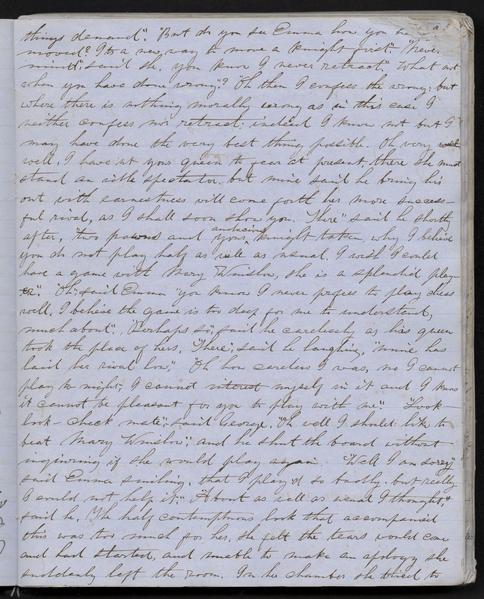 things demand". "But do you see Emma how you have
moved? Its a new way to move a knight aint." "Never
mind" said she, you know I never retract" "What not
when you have done wrong"? "Oh then I confess the wrong; but
where there is nothing morally wrong as in this case I
neither confess nor retract; indeed I know not but I
may have done the very best thing possible. Oh very
well, I have not your queen to fear at present, there she must
stand an idle spectator, but mine said he bring his
out with earnestness will come forth her more success-
ful rival, as I shall soon show you. "There" said he shortly
after, two pawns and your knight taken, why I believe
you do not play half as well as usual. I wish I could
have a game with Mary Winslow, she is a splendid play-
er". "Oh," said Emma "you know I never profess to play chess
well, I believe the game is too deep for me to understand,
much about". "Perhaps so," said he carelessly as his queen
took the place of hers. "There," said he laughing, "mine has
laid her rival low." "Oh how careless I was, no I cannot
play to night; I cannot interest myself in it and I know
it cannot be pleasant for you to play with me." "Look—
look— check mate", said George, "Oh well I should like to
beat Mary Winslow", and he shut the board without
inquiring if she would play again. "Well I am sorry"
said Emma smiling, that I play'd so badly, but really
I could not help it;" "About as well as usual I thought,"
said he. The half contemptuous look that accompanied
this was too much for her, she felt the tears would come
and had started, and unable to make an apology she
suddenly left the room. In her chamber she tried to